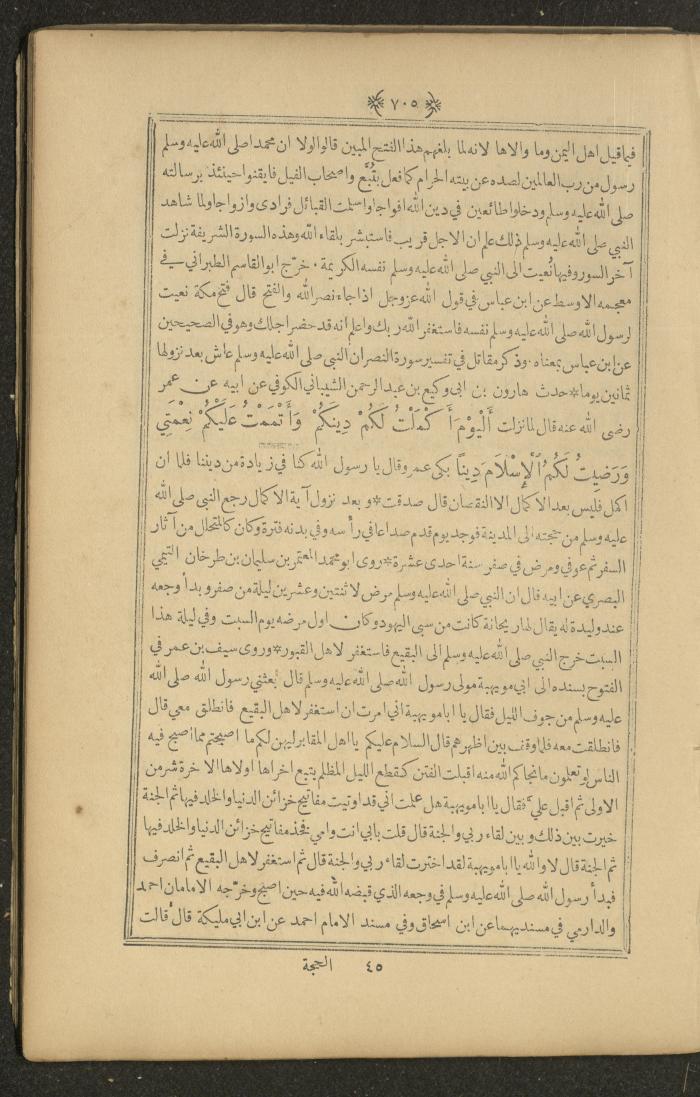 ٧٠٥
فيما قيل اهل اليمن وما والاها لانه لما بلغهم هذا الفتح المبين قالوا لولا ان محمدا صلى الله عليه وسلم
رسول من رب العالمين لصده عن بيته الحرام كما فعل بتُبَّع واصحاب الفيل فايقنوا حينئذ برسالته
صلى الله عليه وسلم ودخلوا طائعين في دين الله افواجا واسلمت القبائل فرادى وازواجا ولما شاهد
النبي صلى الله عليه وسلم ذلك علم ان الاجل قريب فاستبشر بلقاء الله وهذه السورة الشريفة نزلت
آخر السور وفيها نُعيت الى النبي صلى الله عليه وسلم نفسه الكريمة . خرّج ابو القاسم الطبراني في
معجمه الاوسط عن ابن عباس في قول الله عز وجل اذا جاء نصر الله والفتح قال فتح مكة نعيت
لرسول الله صلى الله عليه وسلم نفسه فاستغفر الله ربك واعلم انه قد حضر اجلك وهو في الصحيحين
عن ابن عباس بمعناه . وذكر مقاتل في تفسير سورة النصر ان النبي صلى الله عليه وسلم عاش بعد نزولها
ثمانين يوما * حدث هارون بن ابي وكيع بن عبد الرحمن الشيباني الكوفي عن ابيه عن عمر
رضى الله عنه قال لما نزلت أَلْيَوْمَ أَكْمَلْتُ لَكُمْ دِينَكُمْ وَأَتْمَمْتُ عَلَيْكُمْ نِعْمَتِي
وَرَضِيتُ لَكُمُ ٱلْإِسْلَامَ دِينًا بكى عمر وقال يا رسول الله كنا في زيادة من ديننا فلما ان
اكمل فليس بعد الاكمال الا النقصان قال صدقت * و بعد نزول آية الاكمال رجع النبي صلى الله
عليه وسلم من حجته الى المدينة فوجد يوم قدم صداعا في رأسه وفي بدنه فترة وكان كالمتحلل من آثار
السفر ثم عوفي ومرض في صفر سنة احدى عشرة * روى ابو محمد المعتمر بن سليمان بن طرخان التيمي
البصري عن ابيه قال ان النبي صلى الله عليه وسلم مرض لاثنتين وعشرين ليلة من صفر وبدأ وجعه
عند وليدة له يقال لها ريحانة كانت من سبى اليهود وكان اول مرضه يوم السبت وفي ليلة هذا
السبت خرج النبي صلى الله عليه وسلم الى البقيع فاستغفر لاهل القبور * وروى سيف بن عمر في
الفتوح بسنده الى ابي مويهبة مولى رسول الله صلى الله عليه وسلم قال بعثني رسول الله صلى الله
عليه وسلم من جوف الليل فقال يا ابا مويهبة اني امرت ان استغفر لاهل البقيع فانطلق معي قال
فانطلقت معه فلما وقف بين اظهرهم قال السلام عليكم يا اهل المقابر ليهن لكم ما اصبحتم مما اصبح فيه
الناس لو تعلمون ما نجاكم الله منه اقبلت الفتن كقطع الليل المظلم يتبع اخراها اولاها الاخرة شر من
الاولى ثم اقبل علي فقال يا ابا مويهبة هل علمت اني قد اوتيت مفاتيح خزائن الدنيا والخلد فيها ثم الجنة
خيرت بين ذلك و بين لقاء ربي والجنة قال قلت بابي انت وامي فخذ مفاتيح خزائن الدنيا والخلد فيها
ثم الجنة قال لا والله يا ابا مويهبة لقد اخترت لقاء ربي والجنة قال ثم استغفر لاهل البقيع ثم انصرف
فبدأ رسول الله صلى الله عليه وسلم في وجعه الذي قبضه الله فيه حين اصبح وخرّجه الامامان احمد
والدارمي في مسنديهما عن ابن اسحاق وفي مسند الامام احمد عن ابن ابي مليكة قال قالت
٤٥ الحجة